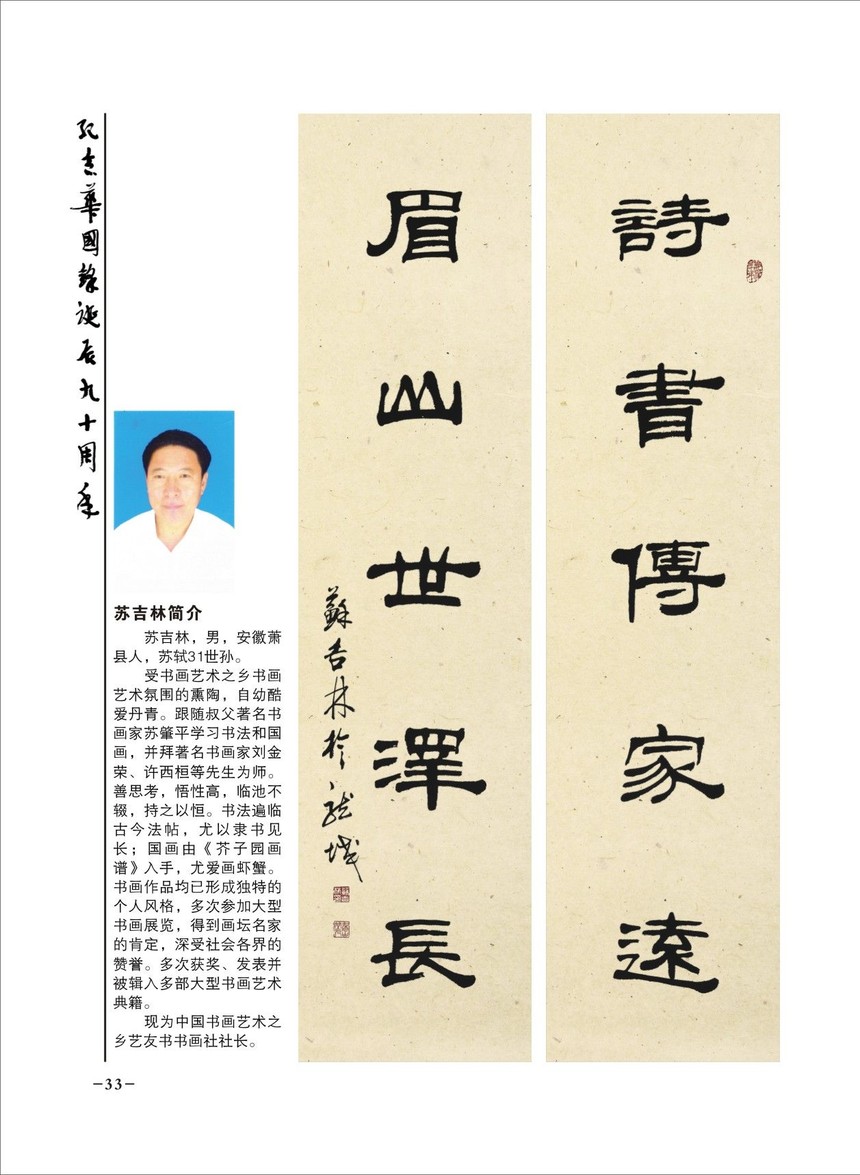 纪念華國鋒诞辰九十周年
詩書傳家遠
眉山世澤長
蘇吉林於龍城
苏吉林简介
苏吉林，男，安徽萧
县人，苏轼31世孙。
受书画艺术之乡书画
艺术氛围的熏陶，自幼酷
爱丹青。跟随叔父著名书
画家苏肇平学习书法和国
画，并拜著名书画家刘金
荣、许西桓等先生为师。
善思考，悟性高，临池不
辍，持之以恒。书法遍临
古今法帖，尤以隶书见
长；国画由《芥子园画
谱》入手，尤爱画虾蟹。
书画作品均已形成独特的
个人风格，多次参加大型
书画展览，得到画坛名家
的肯定，深受社会各界的
赞誉。多次获奖、发表并
被辑入多部大型书画艺术
典籍。
现为中国书画艺术之
乡艺友书书画社社长。
-33-